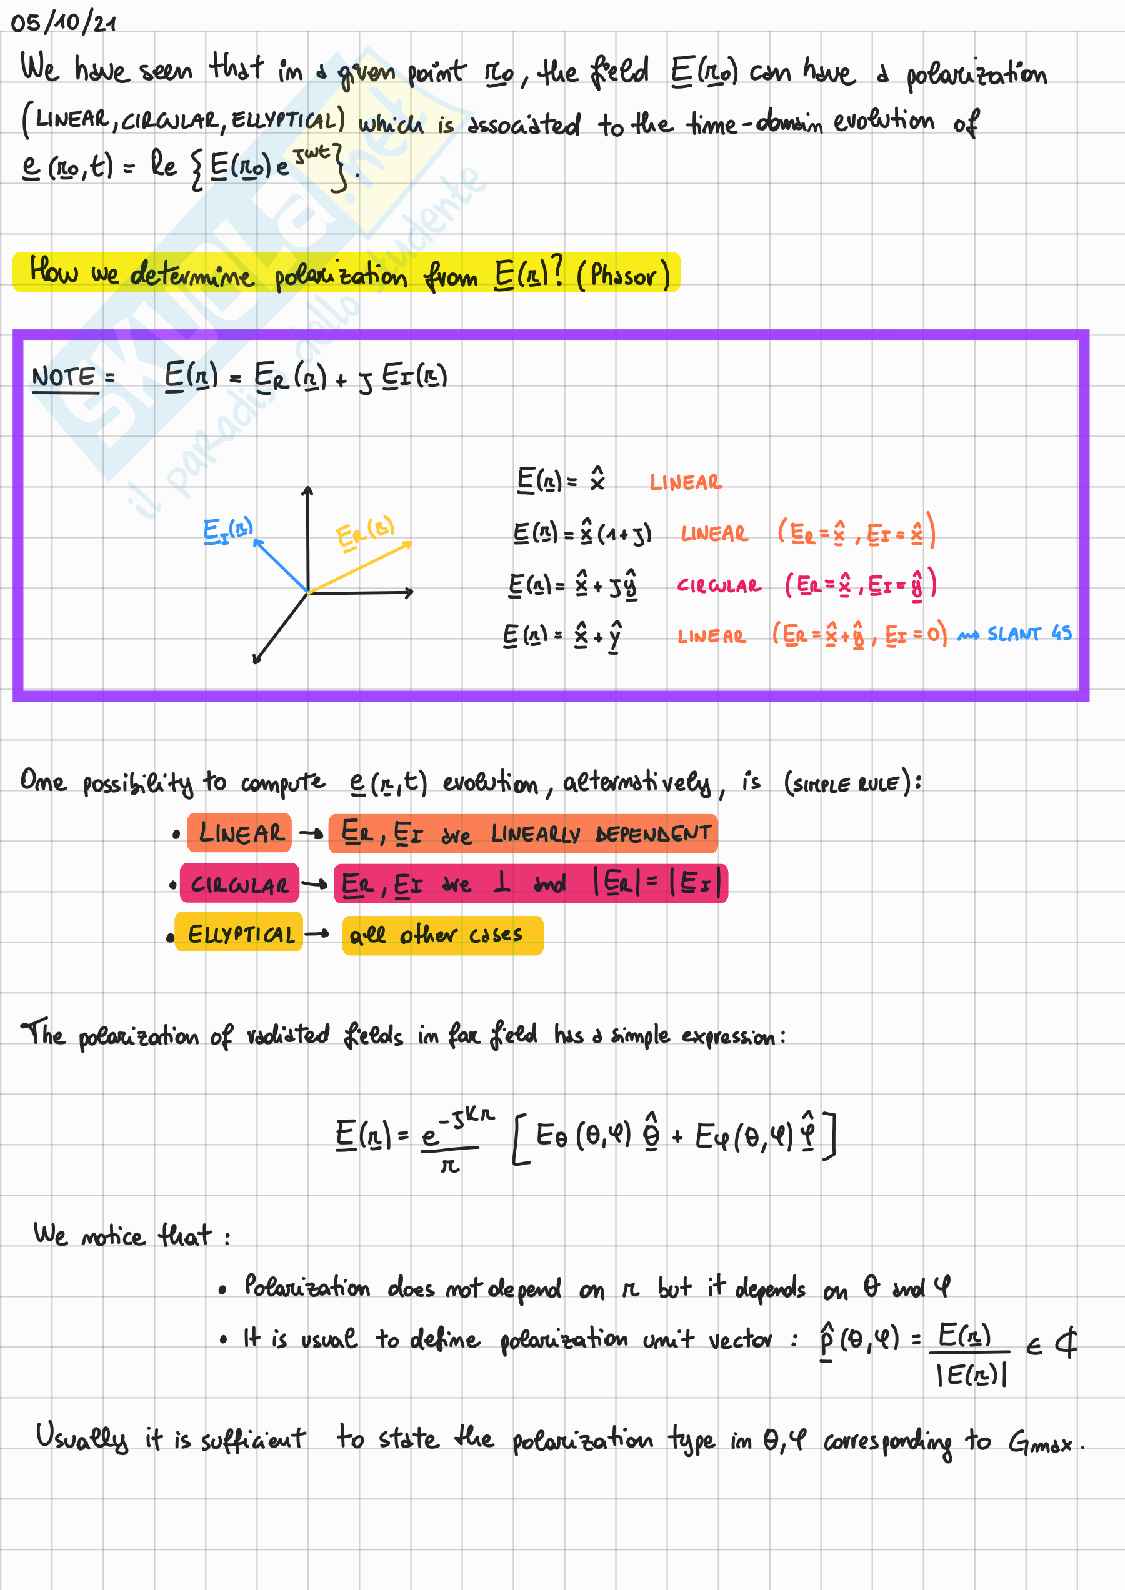 05/10/21
We have seen that in a given point r0, the field E(r0) can have a polarization
(LINEAR, CIRCULAR, ELLYPTICAL) which is associated to the time-domain evolution of
e(r0,t) = Re {E(r0) e^jωt}.
How we determine polarization from E(r)? (Phasor)
NOTE = E(r) = ER(r) + j EI(r)
EI(r) ER(r)
E(r) = x̂ LINEAR
E(r) = x̂(1+j) LINEAR (ER = x̂, EI = x̂)
E(r) = x̂ + jŷ CIRCULAR (ER = x̂, EI = ŷ)
E(r) = x̂ + ŷ LINEAR (ER = x̂+ŷ, EI = 0) ⇝ SLANT 45
One possibility to compute e(r,t) evolution, alternatively, is (SIMPLE RULE):
• LINEAR → ER, EI are LINEARLY DEPENDENT
• CIRCULAR → ER, EI are ⊥ and |ER| = |EI|
• ELLYPTICAL → all other cases
The polarization of radiated fields in far field has a simple expression:
E(r) = e^-jKr / r [Eθ(θ,φ) θ̂ + Eφ(θ,φ) φ̂]
We notice that:
• Polarization does not depend on r but it depends on θ and φ
• It is usual to define polarization unit vector: p̂(θ,φ) = E(r) / |E(r)| ∈ ℂ
Usually it is sufficient to state the polarization type in θ,φ corresponding to Gmax.
SKUOLA.net
il paradiso dello studente